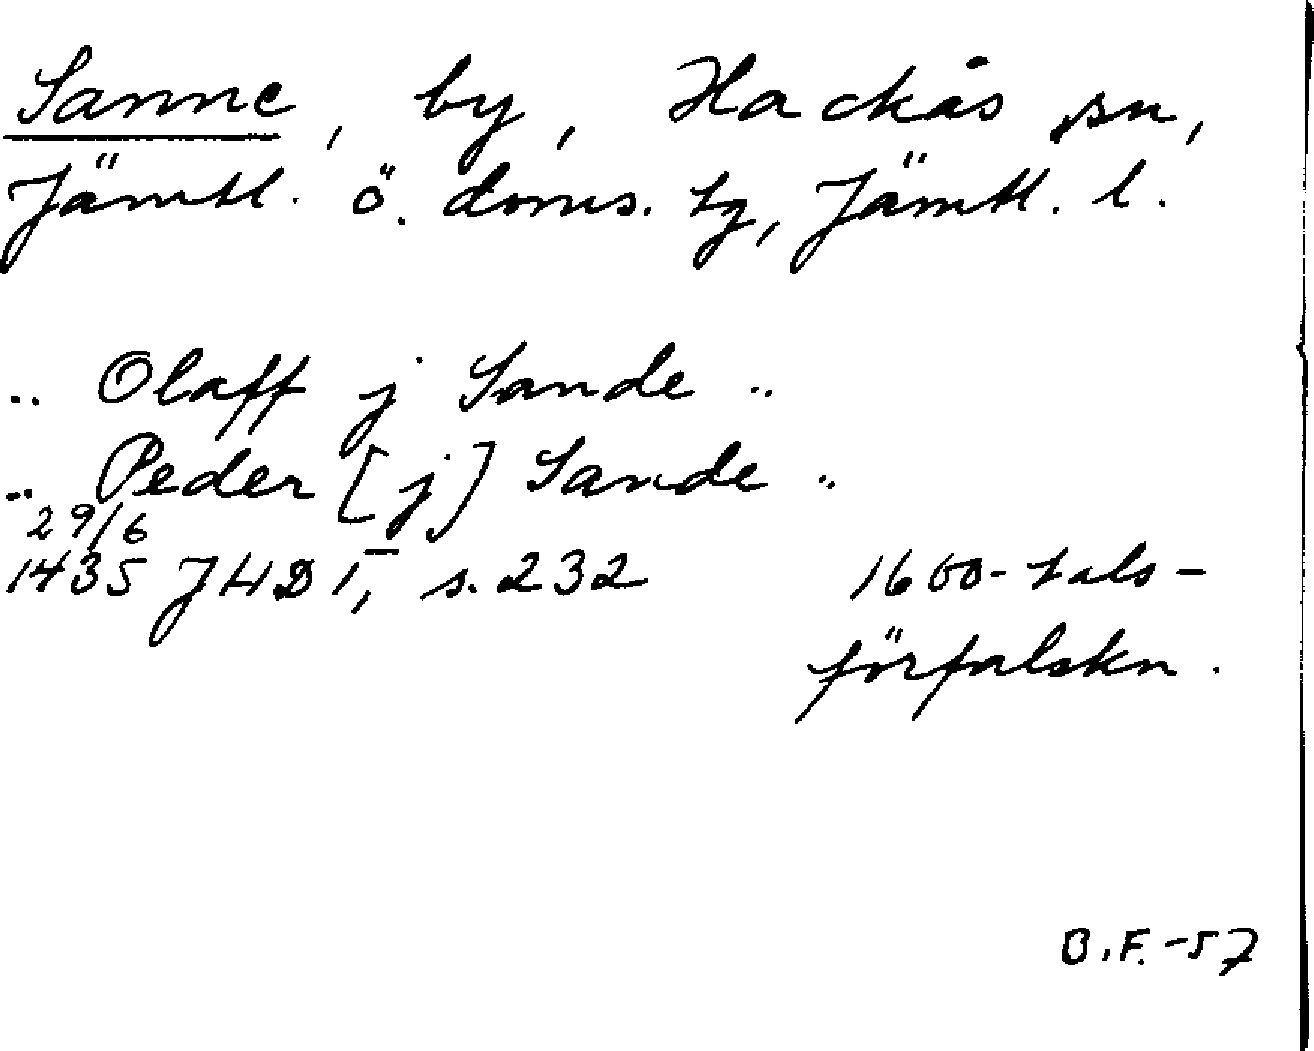 Sanne, by, Hackås sn,
Jämtl. ö. doms. tg, Jämtl. l.
.. Olaff j Sande ..
.. Peder [j] Sande ..
29/6
1435 JHD 1, s. 232 1600-tals-
förfalskn.
B.F. -57